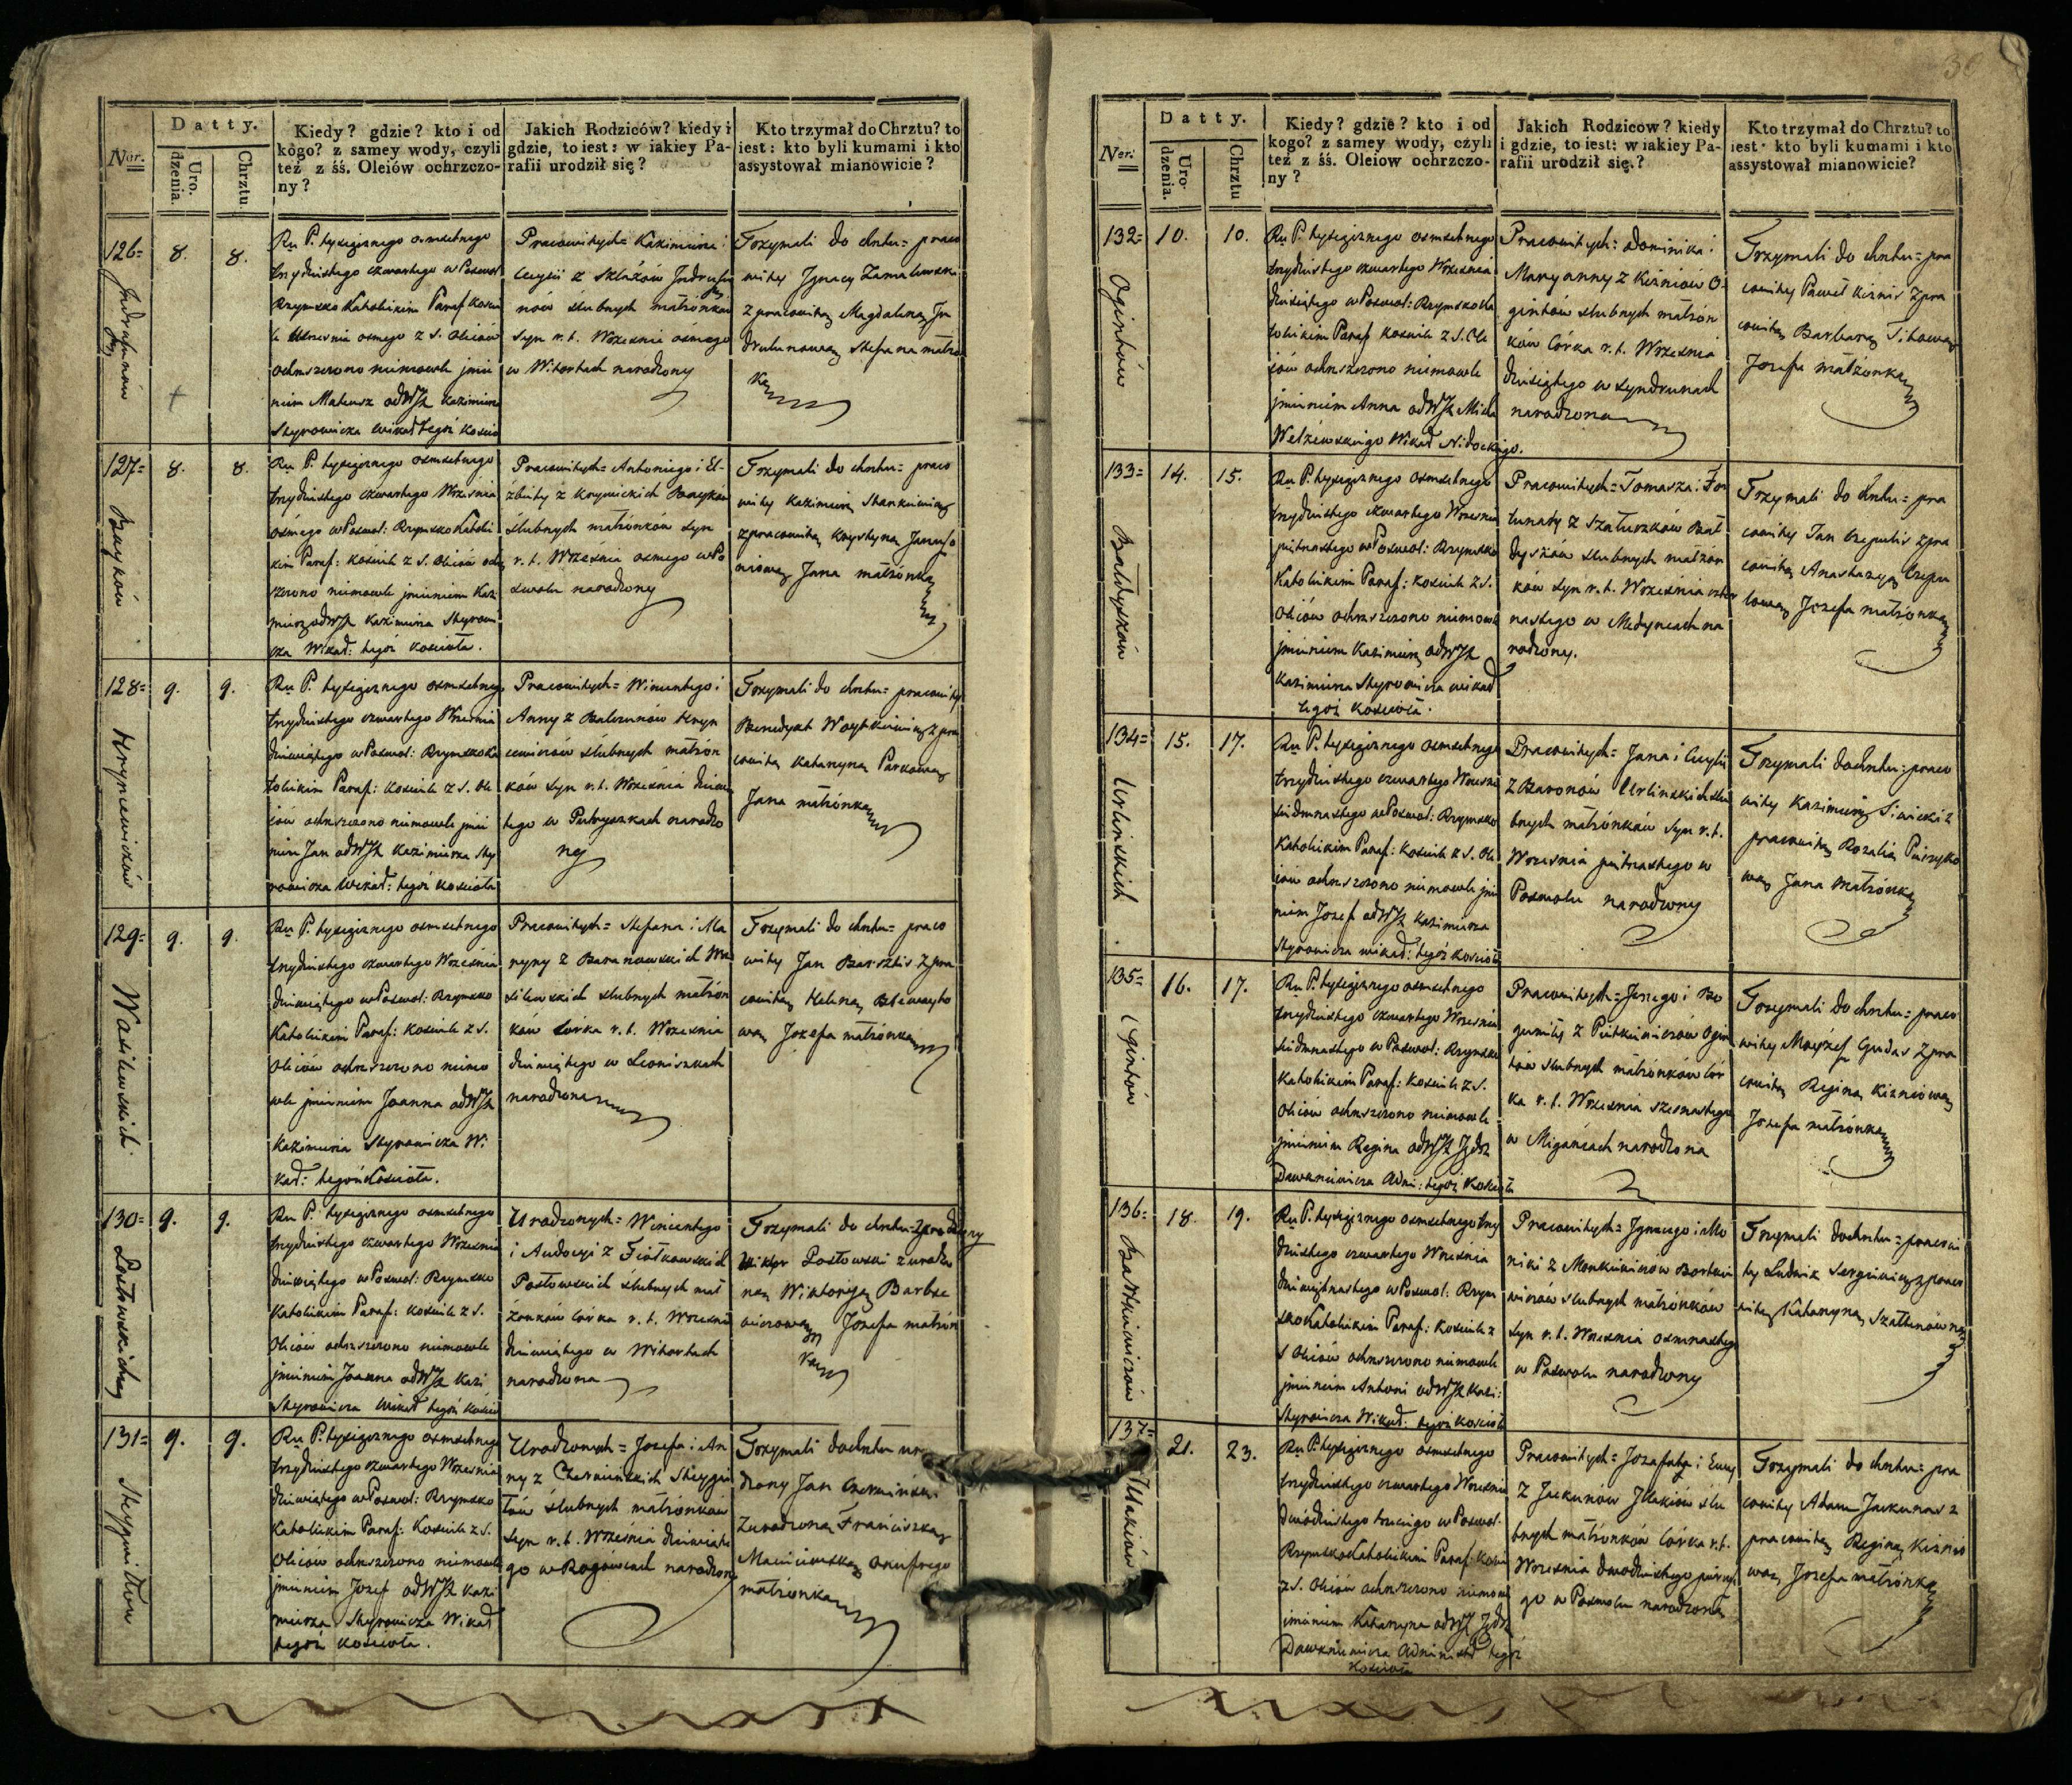 Ner.
Datty.
Uro.
dzenia.
Chrztu.
Kiedy? gdzie? kto i od
kogo? z samey wody, czyli
też z śś. Oleiów ochrzczo-
ny?
Jakich Rodziców? kiedy i
gdzie, to iest: w iakiey Pa-
rafii urodził się?
Kto trzymał do Chrztu? to
iest: kto byli kumami i kto
assystował mianowicie?
126
8.
8.
Ru P. tysięcznego osmsetnego
trzydziestego czwartego w Poswol
Rzymsko Katolickim Paraf Koscie
le Wrzesnia osmego z S. Oleiów
ochrzczono niemowle imie
niem Mateusz od WJX Kazimierza
Styrowicza Wikar tegoż Koscio
Pracowitych Kazimierza i
nów slubnych małżonków
syn r. t. Wrzesnia osmego
w Witartach narodzony
Trzymali do chrztu praco
wity Jgnacy
z pracowitą Magdaleną
Stefana małżo
ką
127
Baykow
8.
8.
Ru P. tysięcznego osmsetnego
trzydziestego czwartego Wrzesnia
osmego w Poswol: Rzymsko Katolic
kim Paraf: Kosciele z S. Oleiów och
rzczono niemowle imieniem Kazi
mierz od WJX Kazimierza Styrowi
cza Wikar: tegoż Kosciola.
Pracowitych Antoniego i El-
żbiety z Krynickich Baykow
slubnych małżonków syn
r. t. Wrzesnia osmego w Po
swolu narodzony
Trzymali do chrztu praco
wity Kazimierz Stankiewicz
z pracowitą Krystyną
Jana małżonką
128
Hryncewiczów
9.
9.
Ru P. tysięcznego osmsetnego
trzydziestego czwartego Wrzesnia
dziewiątego w Poswol: Rzymsko Ka
tolickim Paraf: Kosciele z S. Ole
iów ochrzczono niemowle imie
niem Jan od WJX Kazimierza Sty
rowicza Wikar: tegoż Kosciola
Pracowitych Wincentego i
Anny z Balcunów Hryn
cewiczów slubnych małżon
ków syn r. t. Wrzesnia dziewią
tego w narodzo
ny
Trzymali do chrztu pracowity
Benedykt Woytkiewicz z pra
cowitą Katarzyną Parkową
Jana małżonką
129
Wasilewskich
9.
9.
Ru P. tysięcznego osmsetnego
trzydziestego czwartego Wrzesnia
dziewiątego w Poswol: Rzymsko
Katolickim Paraf: Kosciele z S.
Oleiów ochrzczono niemo
wle imieniem Joanna od WJX
Kazimierza Styrowicza Wi
kar: tegoż Kosciola.
Pracowitych Stefana i Ma
ryny z Baranowskich Wa
silewskich slubnych małżon
ków córka r. t. Wrzesnia
dziewiątego w Leoniszkach
narodzona
Trzymali do chrztu praco
wity Jan z pra
cowitą Heleną
wą Jozefa małżonką
130
Posłowskich
9.
9.
Ru P. tysięcznego osmsetnego
trzydziestego czwartego Wrzesnia
dziewiątego w Poswol: Rzymsko
Katolickim Paraf: Kosciele z S.
Oleiów ochrzczono niemowle
imieniem Joanna od WJX Kazi
Styrowicza Wikar tegoż Koscio
Urodzonych Wincentego
i Audocyi z Fiołkowskich
Posłowskich slubnych mał
żonków córka r. t. Wrzesnia
dziewiątego w Witartach
narodzona
Trzymali do chrztu
Wiktor Posłowski z urodzo
ną Wiktoryą
Jozefa małżon
ką
131
Szygmiłłow
9.
9.
Ru P. tysięcznego osmsetnego
trzydziestego czwartego Wrzesnia
dziewiątego w Poswol: Rzymsko
Katolickim Paraf: Kosciele z S.
Oleiów ochrzczono niemowle
imieniem Jozef od WJX Kazi
mierza Styrowicza Wikar
tegoż Kosciola.
Urodzonych Jozefa i An
ny z
slubnych małżonków
syn r. t. Wrzesnia dziewiąte
go w narodzony
Trzymali do chrztu uro
dzony Jan
z urodzoną Franciszką
Onufrego
małżonką
Ner.
Datty.
Uro-
dzenia.
Chrztu
Kiedy? gdzie? kto i od
kogo? z samey wody, czyli
też z śś. Oleiow ochrzczo-
ny?
Jakich Rodzicow? kiedy
i gdzie, to iest: w iakiey Pa-
rafii urodził się?
Kto trzymał do Chrztu? to
iest kto byli kumami i kto
assystował mianowicie?
132
Ogintów
10.
10.
Ru P. tysięcznego osmsetnego
trzydziestego czwartego Wrzesnia
dziesiątego w Poswol: Rzymsko Ka
tolickim Paraf Kosciele z S. Ole
iów ochrzczono niemowle
imieniem Anna od WJX Micha
Pracowitych Dominika i
Maryanny z Kiżniów O-
gintów slubnych małżon
ków córka r. t. Wrzesnia
dziesiątego w
narodzona
Trzymali do chrztu pra
cowity Paweł Kiżnis z pra
cowitą Barbarą Titową
Jozefa małżonką
133
Baltyszów
14.
15.
Ru P. tysięcznego osmsetnego
trzydziestego czwartego Wrzesnia
piętnastego w Poswol: Rzymsko
Katolickim Paraf: Kosciele z S.
Oleiów ochrzczono niemowle
imieniem Kazimierz od WJX
Kazimierza Styrowicza wikar
tegoż Kosciola.
Pracowitych Tomasza i For
tunaty z
slubnych małżon
ków syn r. t. Wrzesnia czter
nastego w na
rodzony.
Trzymali do chrztu pra
cowity Jan z pra
cowitą Anastazyą
Jozefa małżonką
134
Urlinskich
15.
17.
Ru P. tysięcznego osmsetnego
trzydziestego czwartego Wrzesnia
siedmnastego w Poswol: Rzymsko
Katolickim Paraf: Kosciele z S. Ole
iów ochrzczono niemowle imie
niem Jozef od WJX Kazimierza
Styrowicza wikar: tegoż Kosciola
Pracowitych Jana i Cecylii
z Baronów Urlinskich slu
bnych małżonków syn r. t.
Wrzesnia piętnastego w
Poswolu narodzony
Trzymali do chrztu praco
wity Kazimierz Siwicki z
pracowitą Rozalią
wą Jana małżonką
135
Ogintów
16.
17.
Ru P. tysięcznego osmsetnego
trzydziestego czwartego Wrzesnia
siedmnastego w Poswol: Rzymsko
Katolickim Paraf: Kosciele z S.
Oleiów ochrzczono niemowle
imieniem Regina od WJX
tegoż Kosciola
Pracowitych Jerzego i Bo
gumiły z Piotkiewiczów Ogin
tów slubnych małżonków cór
ka r. t. Wrzesnia szesnastego
w narodzona
Trzymali do chrztu praco
wity Gudas z pra
cowitą Reginą Kiżniową
Jozefa małżonką
136
Bartkiewiczów
18.
19.
Ru P. tysięcznego osmsetnego trzy
dziestego czwartego Wrzesnia
dziewiętnastego w Poswol: Rzym
sko Katolickim Paraf: Kosciele z
S Oleiów ochrzczono niemowle
imieniem Antoni od WJX Kazi:
Styrowicza Wikar: tegoż Kosciola
Pracowitych Jgnacego i Mo
niki z Monkiewiczow Bartkie
wiczów slubnych małżonków
syn r. t. Wrzesnia osmnastego
w Poswolu narodzony
Trzymali do chrztu pracowi
ty Ludwik z praco
witą Katarzyną
137
21.
23.
Ru P. tysięcznego osmsetnego
trzydziestego czwartego Wrzesnia
dwódziestego trzeciego w Poswol.
Rzymsko Katolickim Paraf: Kosci
z S. Oleiów ochrzczono niemowle
imieniem Katarzyna od WJX
tegoż
Kosciola
Pracowitych Jozafata i Ewy
z Jackunów slu
bnych małżonków córka r. t.
Wrzesnia dwódziestego pierwsze
go w Poswolu narodzona
Trzymali do chrztu pra
cowity Adam Jackunas z
pracowitą Reginą Kiżnio
wą Jozefa małżonką